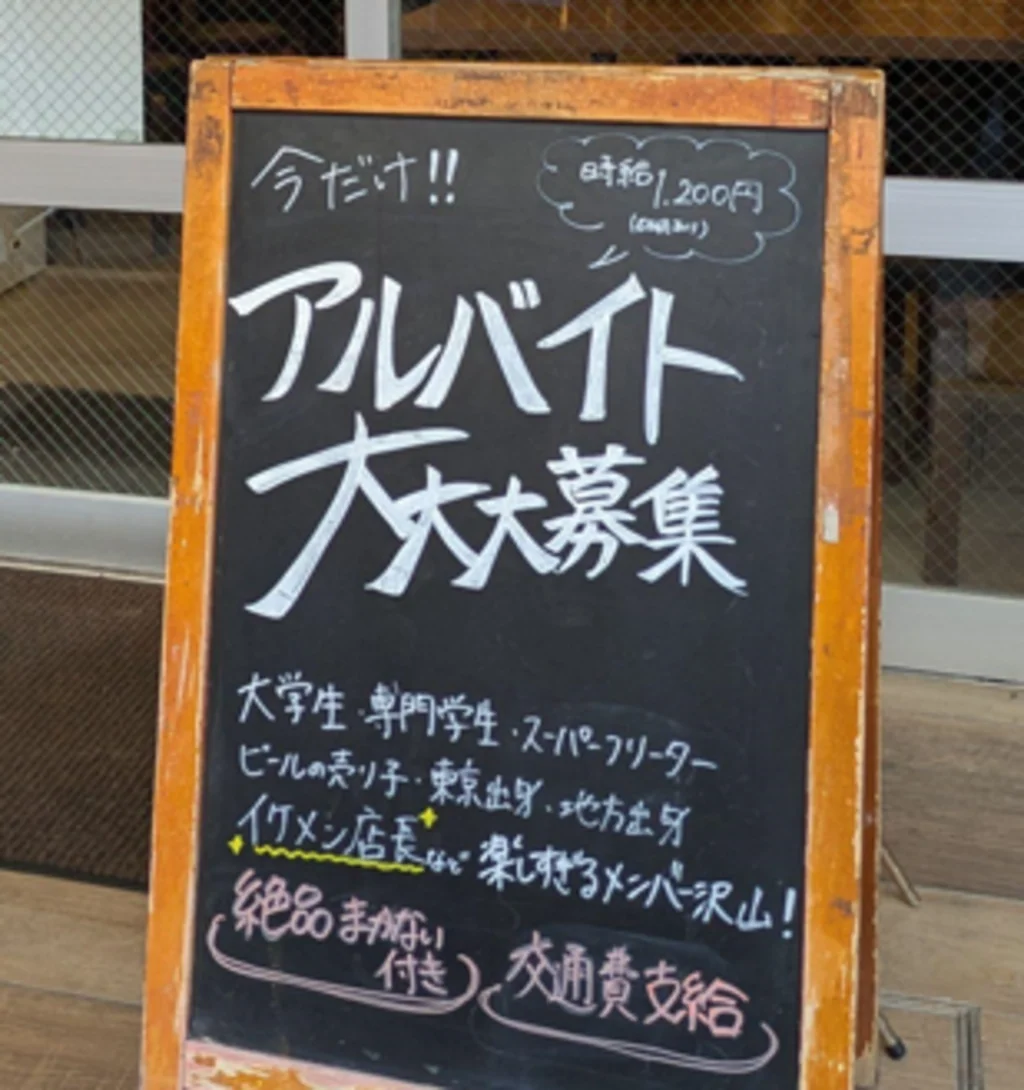 今だけ!!
時給1,200円
アルバイト
大大大募集
大学生・専門学生・スーパーフリーター
ビールの売り子・東京出身・地方出身
イケメン店長など 楽しすぎるメンバー沢山!
絶品まかない
付き
交通費支給